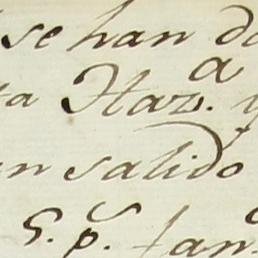 se han da
ta Haz.ª y
an salido
S. P. fan